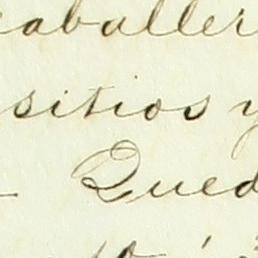 caballer
sitios y
Qued